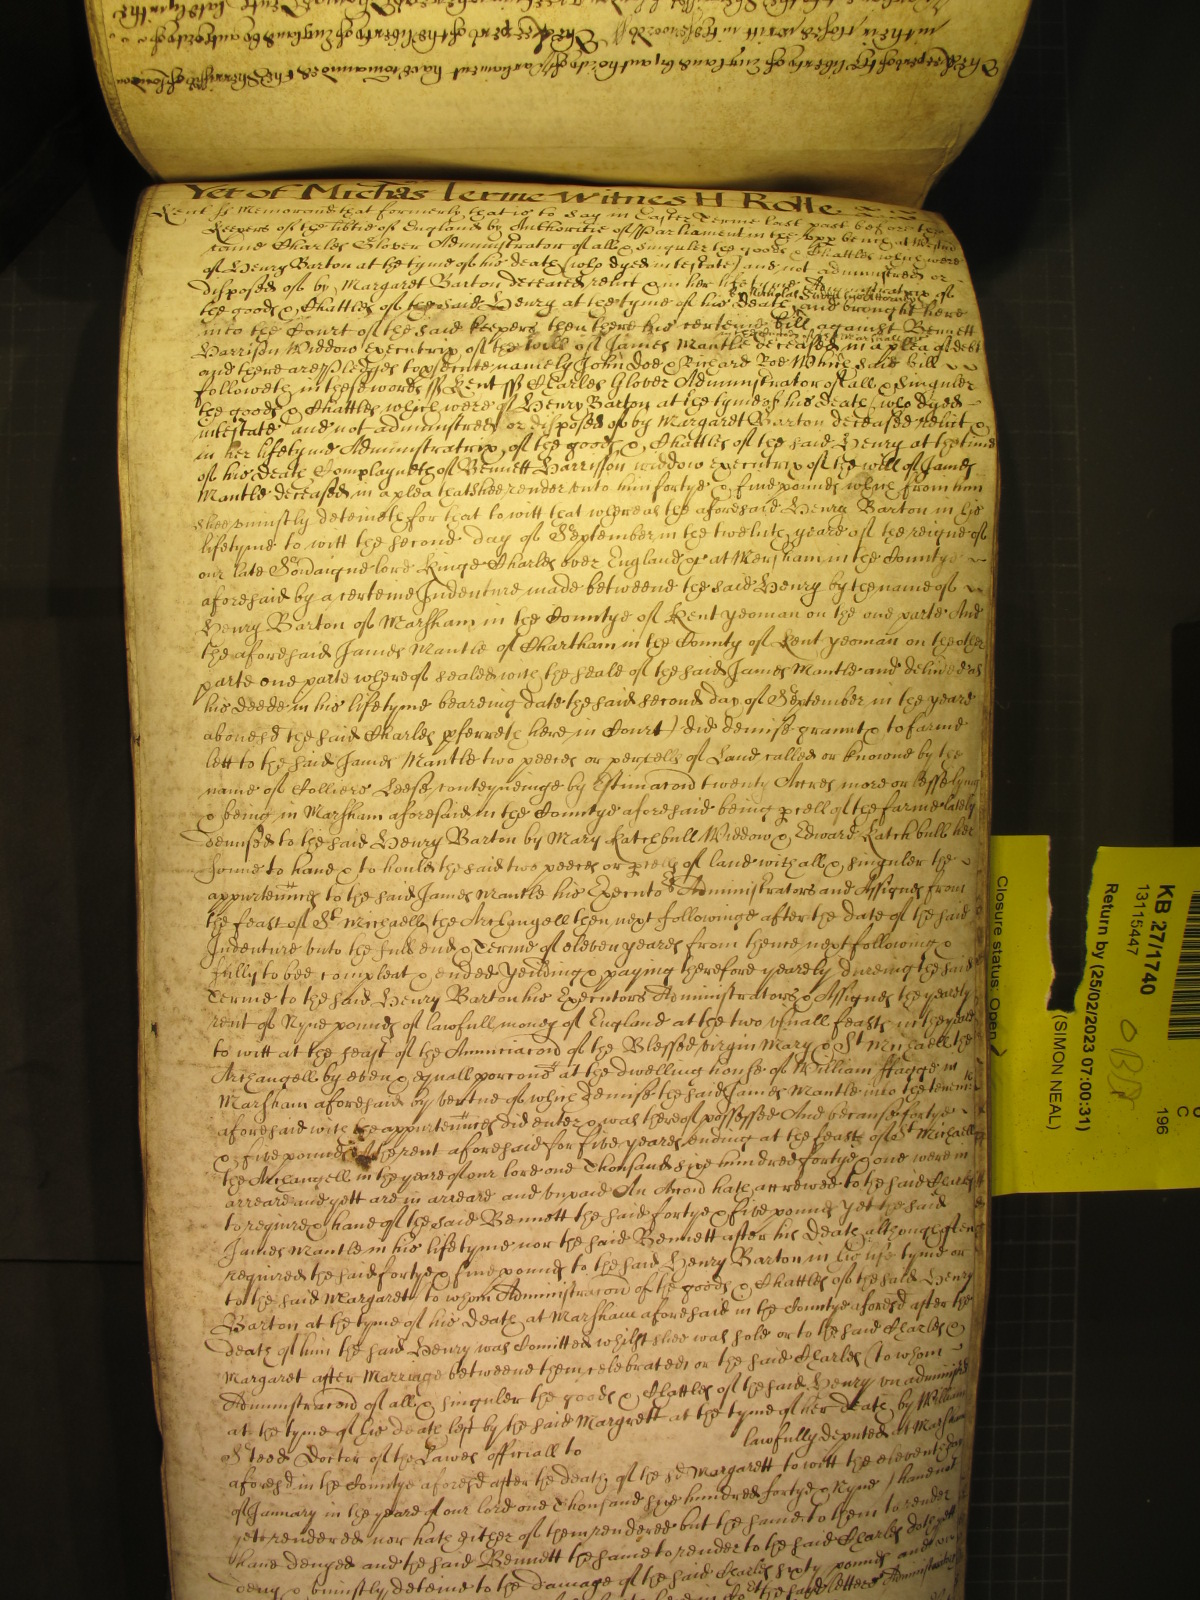 Yet of Michas Terme Witnes H Rolle
Kent ss Memorand that formerly that is to say in Easter Terme last past before the
Keepers of the libtie of England by Authoritie of Parliament in the upp bench at Westm
came Charles Glover Administrator of all & singuler the goods & Chattles which were
of Henry Barton at the tyme of his death (who dyed intestate) and not administred or
disposed of by Margaret Barton deceased relict & in her life tyme Administratrix of
the goods & Chattles of the said Henry at the tyme of his death and brought here
into the Court of the said keepers then there his certeine bill against Bennett
Harrison Widdow Executrix of the will of James Mantle deceased in a plea of debt
and there are Pledges to psecute namely John Doe & Richard Roe Which said bill
followeth in these words ss Kent ss Charles Glover Administrator of all & singuler
the goods & Chattles which were of Henry Barton at the tyme of his death (who dyed
intestate and not administred or disposed of by Margaret Barton deceased relict &
in her lifetyme Administratrix of the goods & Chattles of the said Henry at the time
of his death Complayneth of Bennett Harrisson widdow executrix of the will of James
Mantle deceased in a plea that shee render unto him fortye & five pounds which from him
shee uniustly deteineth for that to witt that whereas the aforesaid Henry Barton in his
lifetyme to witt the second day of September in the twelueth yeare of the reigne of
our late Soveraigne lord Kinge Charles over England &c at Mersham in the Countye
aforesaid by a certeine Indenture made betweene the said Henry by the name of
Henry Barton of Marsham in the Countye of Kent yeoman on the one parte And
the aforesaid James Mantle of Chartham in the County of Kent yeoman on the other
parte one parte whereof sealed with the seale of the said James Mantle and delivered as
his deede in his lifetyme beareing date the said second day of September in the yeare
abovesd the said Charles pferreth here in Court) did demise graunt & to farme
lett to the said James Mantle two peeces or percells of Land called or knowne by the
name of Colliers Leese conteyneinge by Estimacon twenty Acres more or lesse lying
& being in Marsham aforesaid in the Countye aforesaid being pcell of the farme lately
demised to the said Henry Barton by Mary Katchbull Widdow & Edward Katchbull her
sonne to have & to hould the said two peeces or pcells of land with all & singuler the
appurtennces to the said James Mantle his Executors Administrators and Assignes from
the feast of St Michaell the Archangell then next followinge after the date of the said
Indenture unto the full end & Terme of eleven yeares from thence next following &
fully to bee compleat & ended Yeilding & paying therefore yearely dureing the said
Terme to the said Henry Barton his Executors Administrators & Assignes the yearely
rent of Nyne pounds of lawfull money of England at the two usuall feasts in the yeare
to witt at the feast of the Annunciacon of the Blessed virgin Mary & St Michaell the
Archangell by even & equall porcons at the dwelling house of William ffagge in
Marsham aforesaid by vertue of which Demise the said James Mantle into the tenemts
aforesaid with the appurtennces did enter & was thereof possessed And because fortye
& five pounds of the rent aforesaid for five yeares ending at the feast of St Michaell
the Archangell in the yeare of our lord one Thousand six hundred fortye & one were in
arreare and yett are in arreare and unpaid An Accon hath accrewed to the said Charles
to require & have of the said Bennett the said fortye & five pounds Yet the said
James Mantle in his lifetyme nor the said Bennett after his Death although often
required the said fortye & five pounds to the said Henry Barton in his life tyme or
to the said Margarett to whom Administracon of the goods & Chattles of the said Henry
Barton at the tyme of his Death at Marsham aforesaid in the Countye aforesd after the
death of him the said Henry was Comitted whilst shee was sole or to the said Charles &
Margaret after Marriage betweene them celebrated or the said Charles (to whom
Administracon of all & singuler the goods & Chattles of the said Henry un administred
at the tyme of his death left by the said Margrett at the tyme of her death by William
Steed Doctor of the Lawes officiall to lawfully deputed at Marsham
aforesd in the Countye aforesd after the death of the sd Margarett to witt the eleventh day
of January in the yeare of our lord one Thousand six hundred fortye & Nyne) have not
yett rendered nor hath either of them rendered but the same to them to render
have denyed and the said Bennett the same to render to the said Charles doth yett
deny & uniustly deteine to the damage of the said Charles sixty pounds and
the said letters Administratory
Closure status: Open
KB 27/1740
13115447
Return by (25/02/2023 07:00:31)
(SIMON NEAL)
196
C